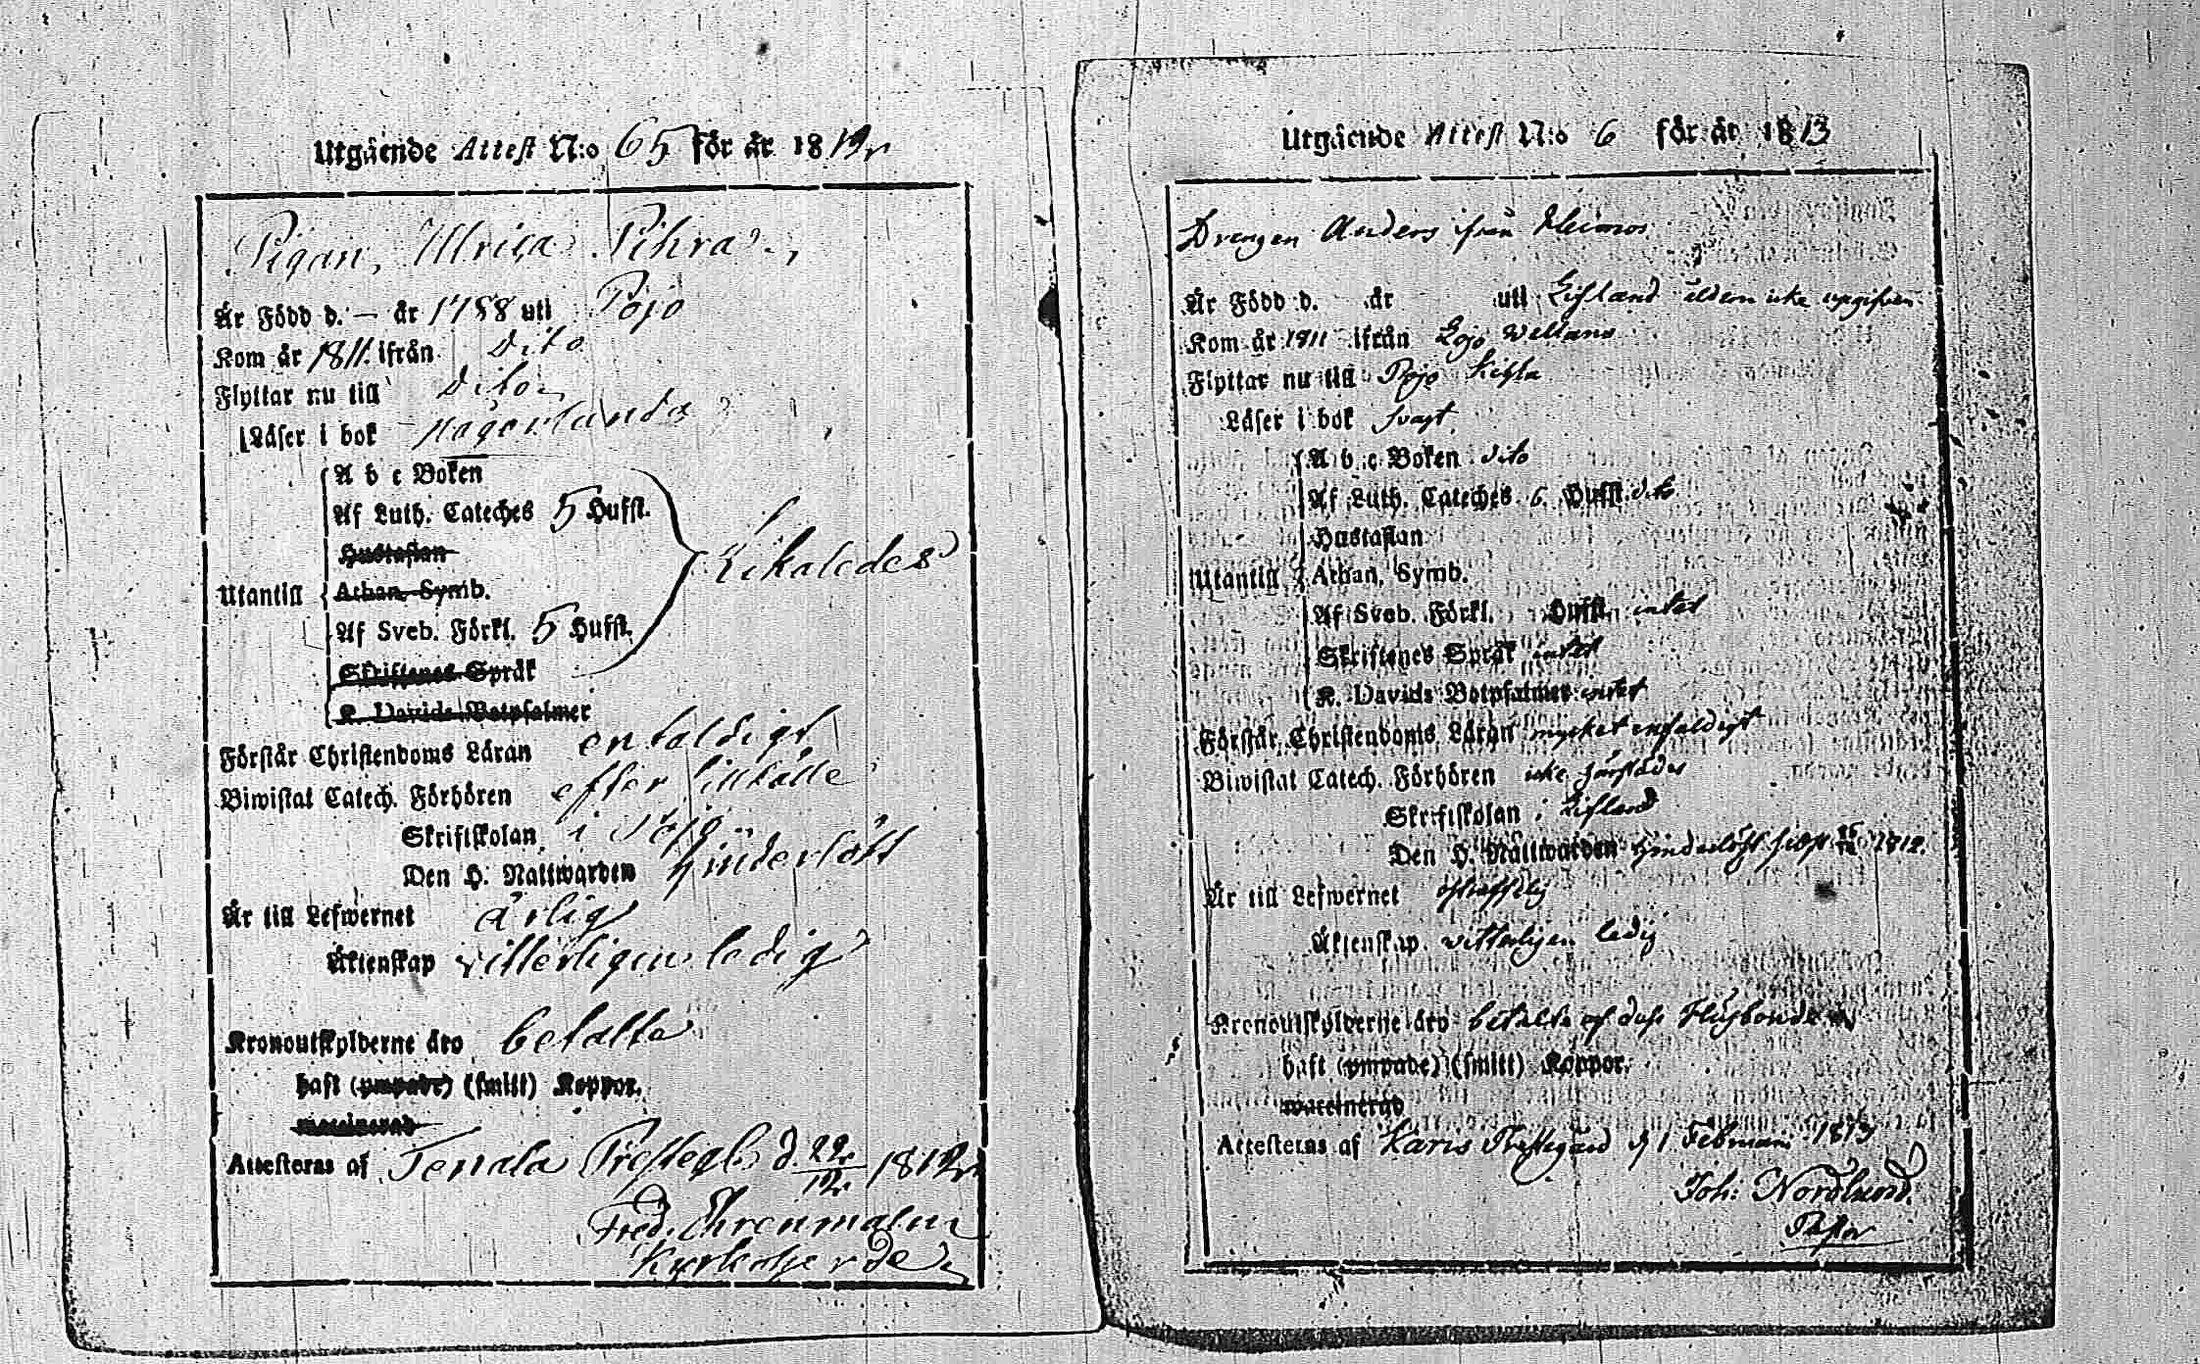 Utgående Attest N:o 65 för år 1812
Pigan, Ulrica Pihra
Är Född d. — år 1788 uti Pojo
Kom år 1811. ifrån Dito
Flyttar nu till Dito
Läser i bok någorlunda
A b c Boken
Af Luth. Cateches 5 Hufst.
Hustaflan
Likaledes
Utantill
Athan. Symb.
Af Sveb. Förkl. 5 Hufst.
Skriftenes Språk
K. Davids Botpsalmer
Förstår Christendoms Läran enfaldigt
Biwistat Catech. Förhören efter
Skriftskolan i Pojo
Den H. Nattwarden hinderlöst
Är till Lefwernet ärlig
Äktenskap vitterligen ledig
Kronoutskylderne äro betalte
haft (ympade) (smitt) Koppor.
waccinerad
Attesteras af Tenala Prestegd. d. 22/12 1812
Fred. Ehrenmalm
Kyrkoherde
Utgående Attest N:o 6 för år 1813
Drengen Anders ifrån
Är Född d. år uti Lifland åldern icke upgifven
Kom år 1811 ifrån Lojo
Flyttar nu till Pojo
Läser i bok svagt
A b c Boken dito
Af Luth. Cateches 6. Hufst. dito
Hustaflan
Utantill
Athan. Symb.
Af Sveb. Förkl. Hufst. intet
Skriftenes Språk intet
K. Davids Botpsalmer intet
Förstår Christendoms Läran mycket enfaldigt
Biwistat Catech. Förhören icke härstädes
Skriftskolan i Lifland
Den H. Nattwarden hinderlöst 1812.
Är till Lefwernet ostrafflig
Äktenskap vitterligen ledig
Kronoutskylderne äro betalde af dess Husbonde
haft (ympade) (smitt) Koppor.
waccinerad
Attesteras af Karis Prestegård d 1 Februari 1813
Joh: Nordlund.
Pastor